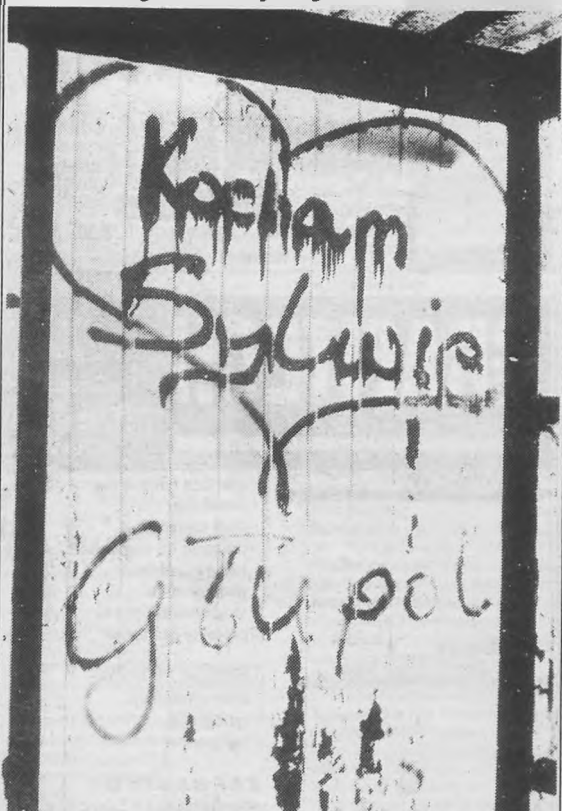 Kocham
Sylwię
Głupol